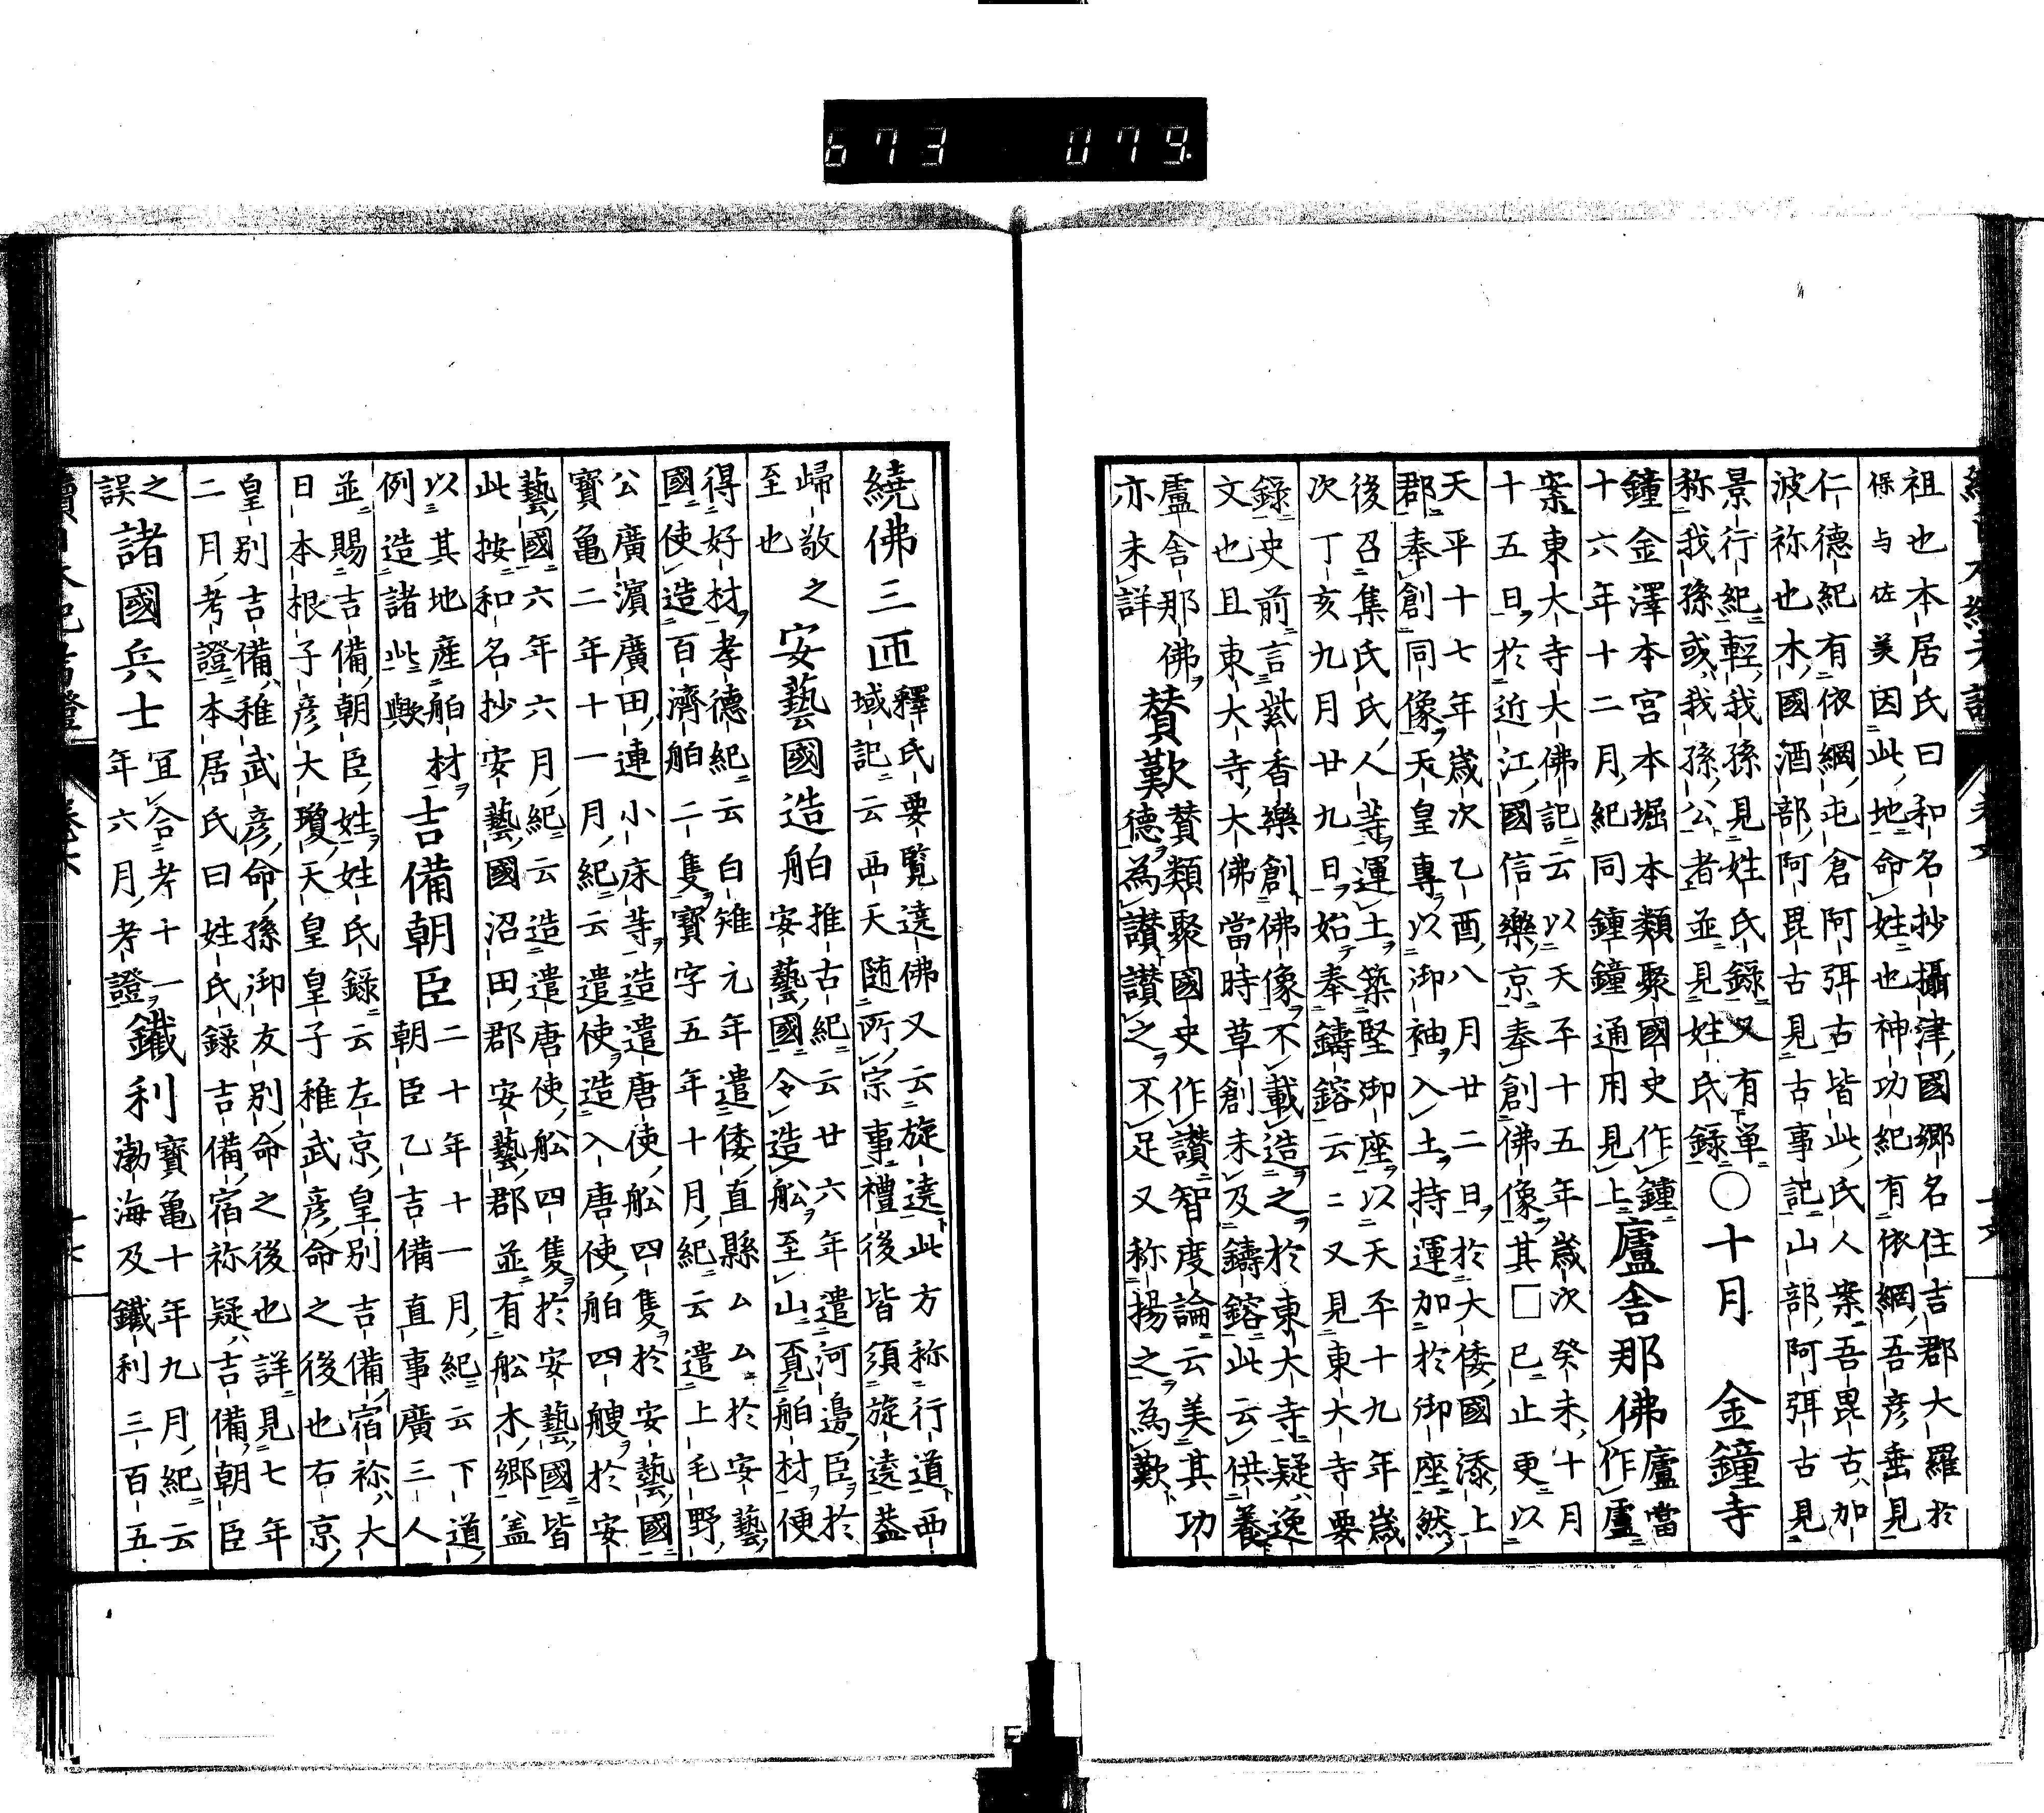 673 079.
祖也本居氏曰和名抄攝津國郷名住吉郡大羅於
保与佐美因此地命姓也神功紀有依網吾彦垂見
仁德紀有依網屯倉阿弭古皆此氏人案吾毘古加
波祢也木國酒部阿毘古見古事記山部阿弭古見
景行紀輕我孫見姓氏錄又有單
称我孫或我孫公者並見姓氏錄
○十月 金鐘寺
鐘金澤本宮本堀本類聚國史作鍾
十六年十二月紀同鐘鍾通用見上
盧舎那佛
盧當
作盧
案東大寺大佛記云以天平十五年歳次癸未十月
十五日於近江國信樂京奉創佛像其□巳止更以
天平十七年歳次乙酉八月廿二日於大倭國添上
郡奉創同像天皇專以御袖入土持運加於御座然
後召集氏氏人等運土築堅御座以天平十九年歳
次丁亥九月廿九日始奉鑄鎔云云又見東大寺要
錄史前言紫香樂創佛像不載造之於東大寺疑逸
文也且東大寺大佛當時草創未及鑄鎔此云供養
盧舎那佛
亦未詳
賛歎
賛類聚國史作讃智度論云美其功
德為讃讃之不足又称揚之為歎
繞佛三匝
釋氏要覧遶佛又云旋遶此方称行道西
域記云西天随所宗事禮後皆須旋遶葢
歸敬之
至也
安藝國造舶
推古紀云廿六年遣河邊臣於
安藝國令造舩至山覓舶材便
得好材孝德紀云白雉元年遣倭直縣ムム於安藝
國使造百濟舶二隻寶字五年十月紀云遣上毛野
公廣濵廣田連小床等造遣唐使舩四隻於安藝國
寶亀二年十一月紀云遣使造入唐使舶四艘於安
藝國六年六月紀云造遣唐使舩四隻於安藝國皆
此按和名抄安藝國沼田郡安藝郡並有舩木郷盖
以其地産舶材
例造諸此歟
吉備朝臣
二十年十一月紀云下道
朝臣乙吉備直事廣三人
並賜吉備朝臣姓姓氏録云左京皇別吉備宿祢大
日本根子彦大瓊天皇皇子稚武彦命之後也右京
皇別吉備稚武彦命孫御友別命之後也詳見七年
二月考證本居氏曰姓氏録吉備宿祢疑吉備朝臣
之
誤
諸國兵士
宜合考十一
年六月考證
鐵利
寶亀十年九月紀云
渤海及鐵利三百五